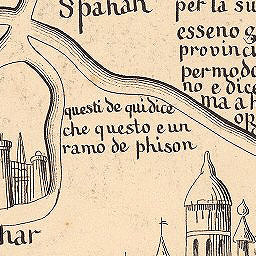 Spahan
per la su
esseno g
provinci
permodo
no e dice
ma a h
questi de qui dice
che questo e un
ramo de phison
har